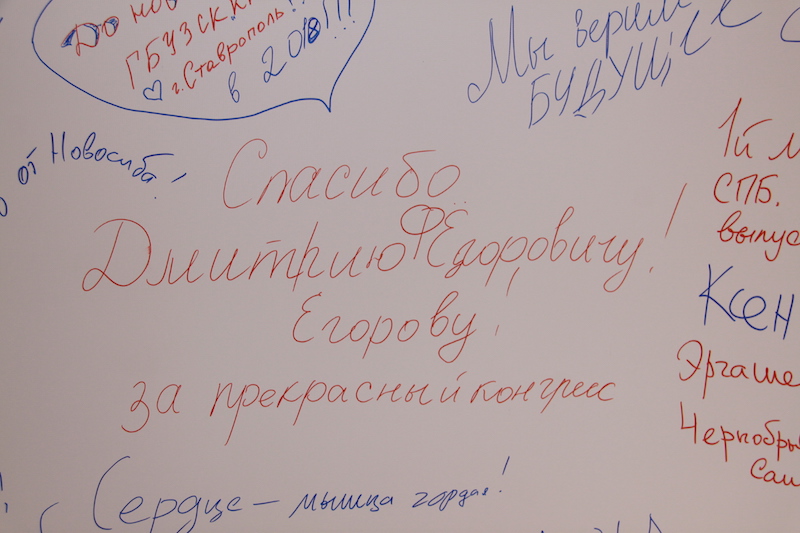 До нов
ГБУЗСКК
г. Ставрополь!!
в 2018!!!
Мы верим
БУДУЩЕЕ
от Новосиба!
Спасибо
Дмитрию Фёдоровичу!
Егорову!
за прекрасный конгресс
1й М
СПБ.
выпус
Ксен
Эргаше
Чернобры
Саи
Сердце – мышца гордая!